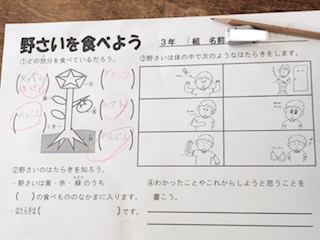 野さいを食べよう
３年　組　名前
①どの部分を食べているだろう。
③野さいは体の中で次のようなはたらきをします。
花
実
葉
くき
根
トマト
②野さいのはたらきを知ろう。
・野さいは黄・赤・緑のうち
みどり
（　）の食べもののなかまに入ります。
・はたらきは（　　　）です。
④わかったことやこれからしようと思うことを
書こう。